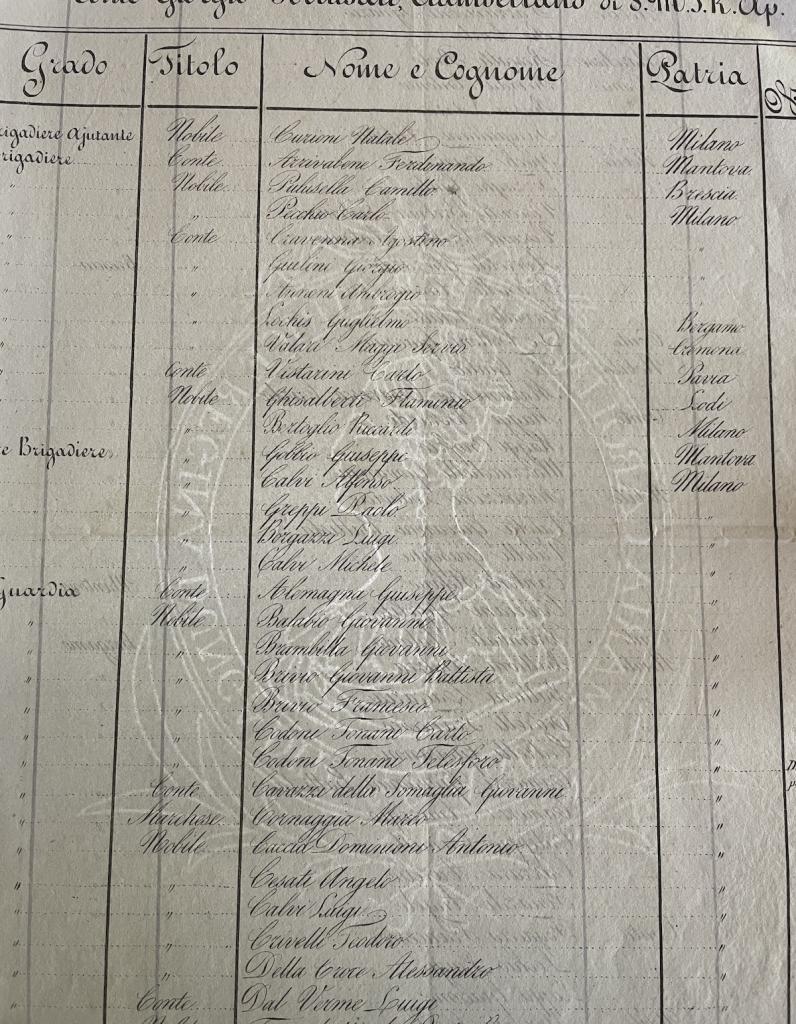 Conte Giorgio Chamberlano di S.M.I.R.Ap.
Grado Titolo Nome e Cognome Patria
Brigadiere Ajutante Nobile Curioni Natale Milano
Brigadiere Conte Arrivabene Ferdenando Mantova
" Nobile Palusella Camillo Brescia
" " Pecchio Carlo Milano
" Conte Cravenna Agostino "
" " Giulini Giorgio "
" " Anneni Ambrogio "
" " Lochis Guglielmo Bergamo
" " Valari Maggi Servio Cremona
" Conte Vistarini Carlo Pavia
" Nobile Ghisalberti Flaminio Lodi
" " Bertoglio Riccardo Milano
e Brigadiere " Gobbio Giuseppe Mantova
" " Calvi Alfonso Milano
" " Greppi Paolo "
" " Borgazzi Luigi "
" " Calvi Michele "
Guardia Conte Alemagna Giuseppe "
" Nobile Balabio Giovanni "
" " Brambilla Giovanni "
" " Brivio Giovanni Battista "
" " Brivio Francesco "
" " Codoni Tonani Carlo "
" " Codoni Tonani Telesforo "
" Conte Cavazzi della Somaglia Giovanni "
" Marchese Cornaggia Marco "
" Nobile Caccia Dominioni Antonio "
" " Cesati Angelo "
" " Calvi Luigi "
" " Crivelli Teodoro "
" " Della Croce Alessandro "
" Conte Dal Verme Luigi "